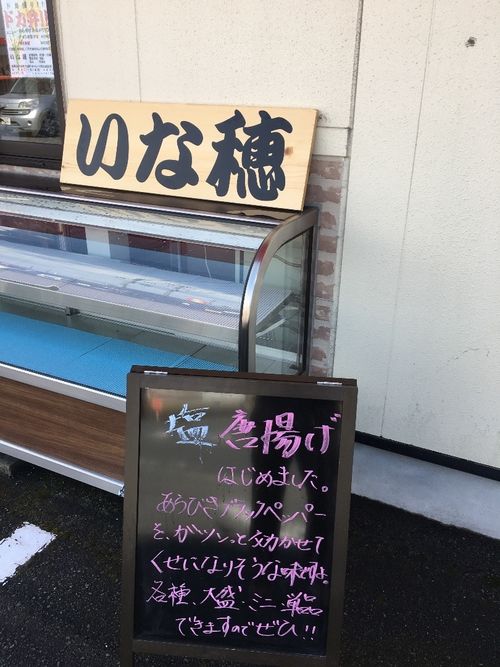 いな穂
塩唐揚げ
はじめました。
あらびきブラックペッパー
を、ガツンっと効かせて
くせになりそうな味わい。
各種、大盛・ミニ・単品
できますのでぜひ!!